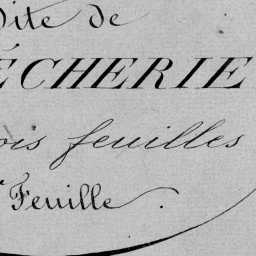 Dite de
ÉCHERIE
ois feuilles
Feuille.